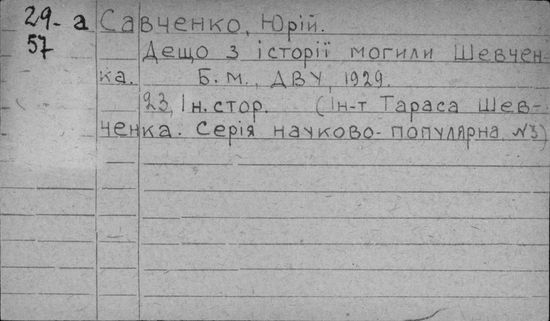 29-а Савченко, Юрій.
57 Дещо з історії могили Шевчен-
ка. Б.м., ДВУ, 1929.
23, Ін.стор. (Ін-т Тараса Шев-
ченка. Серія науково-популярна №3)